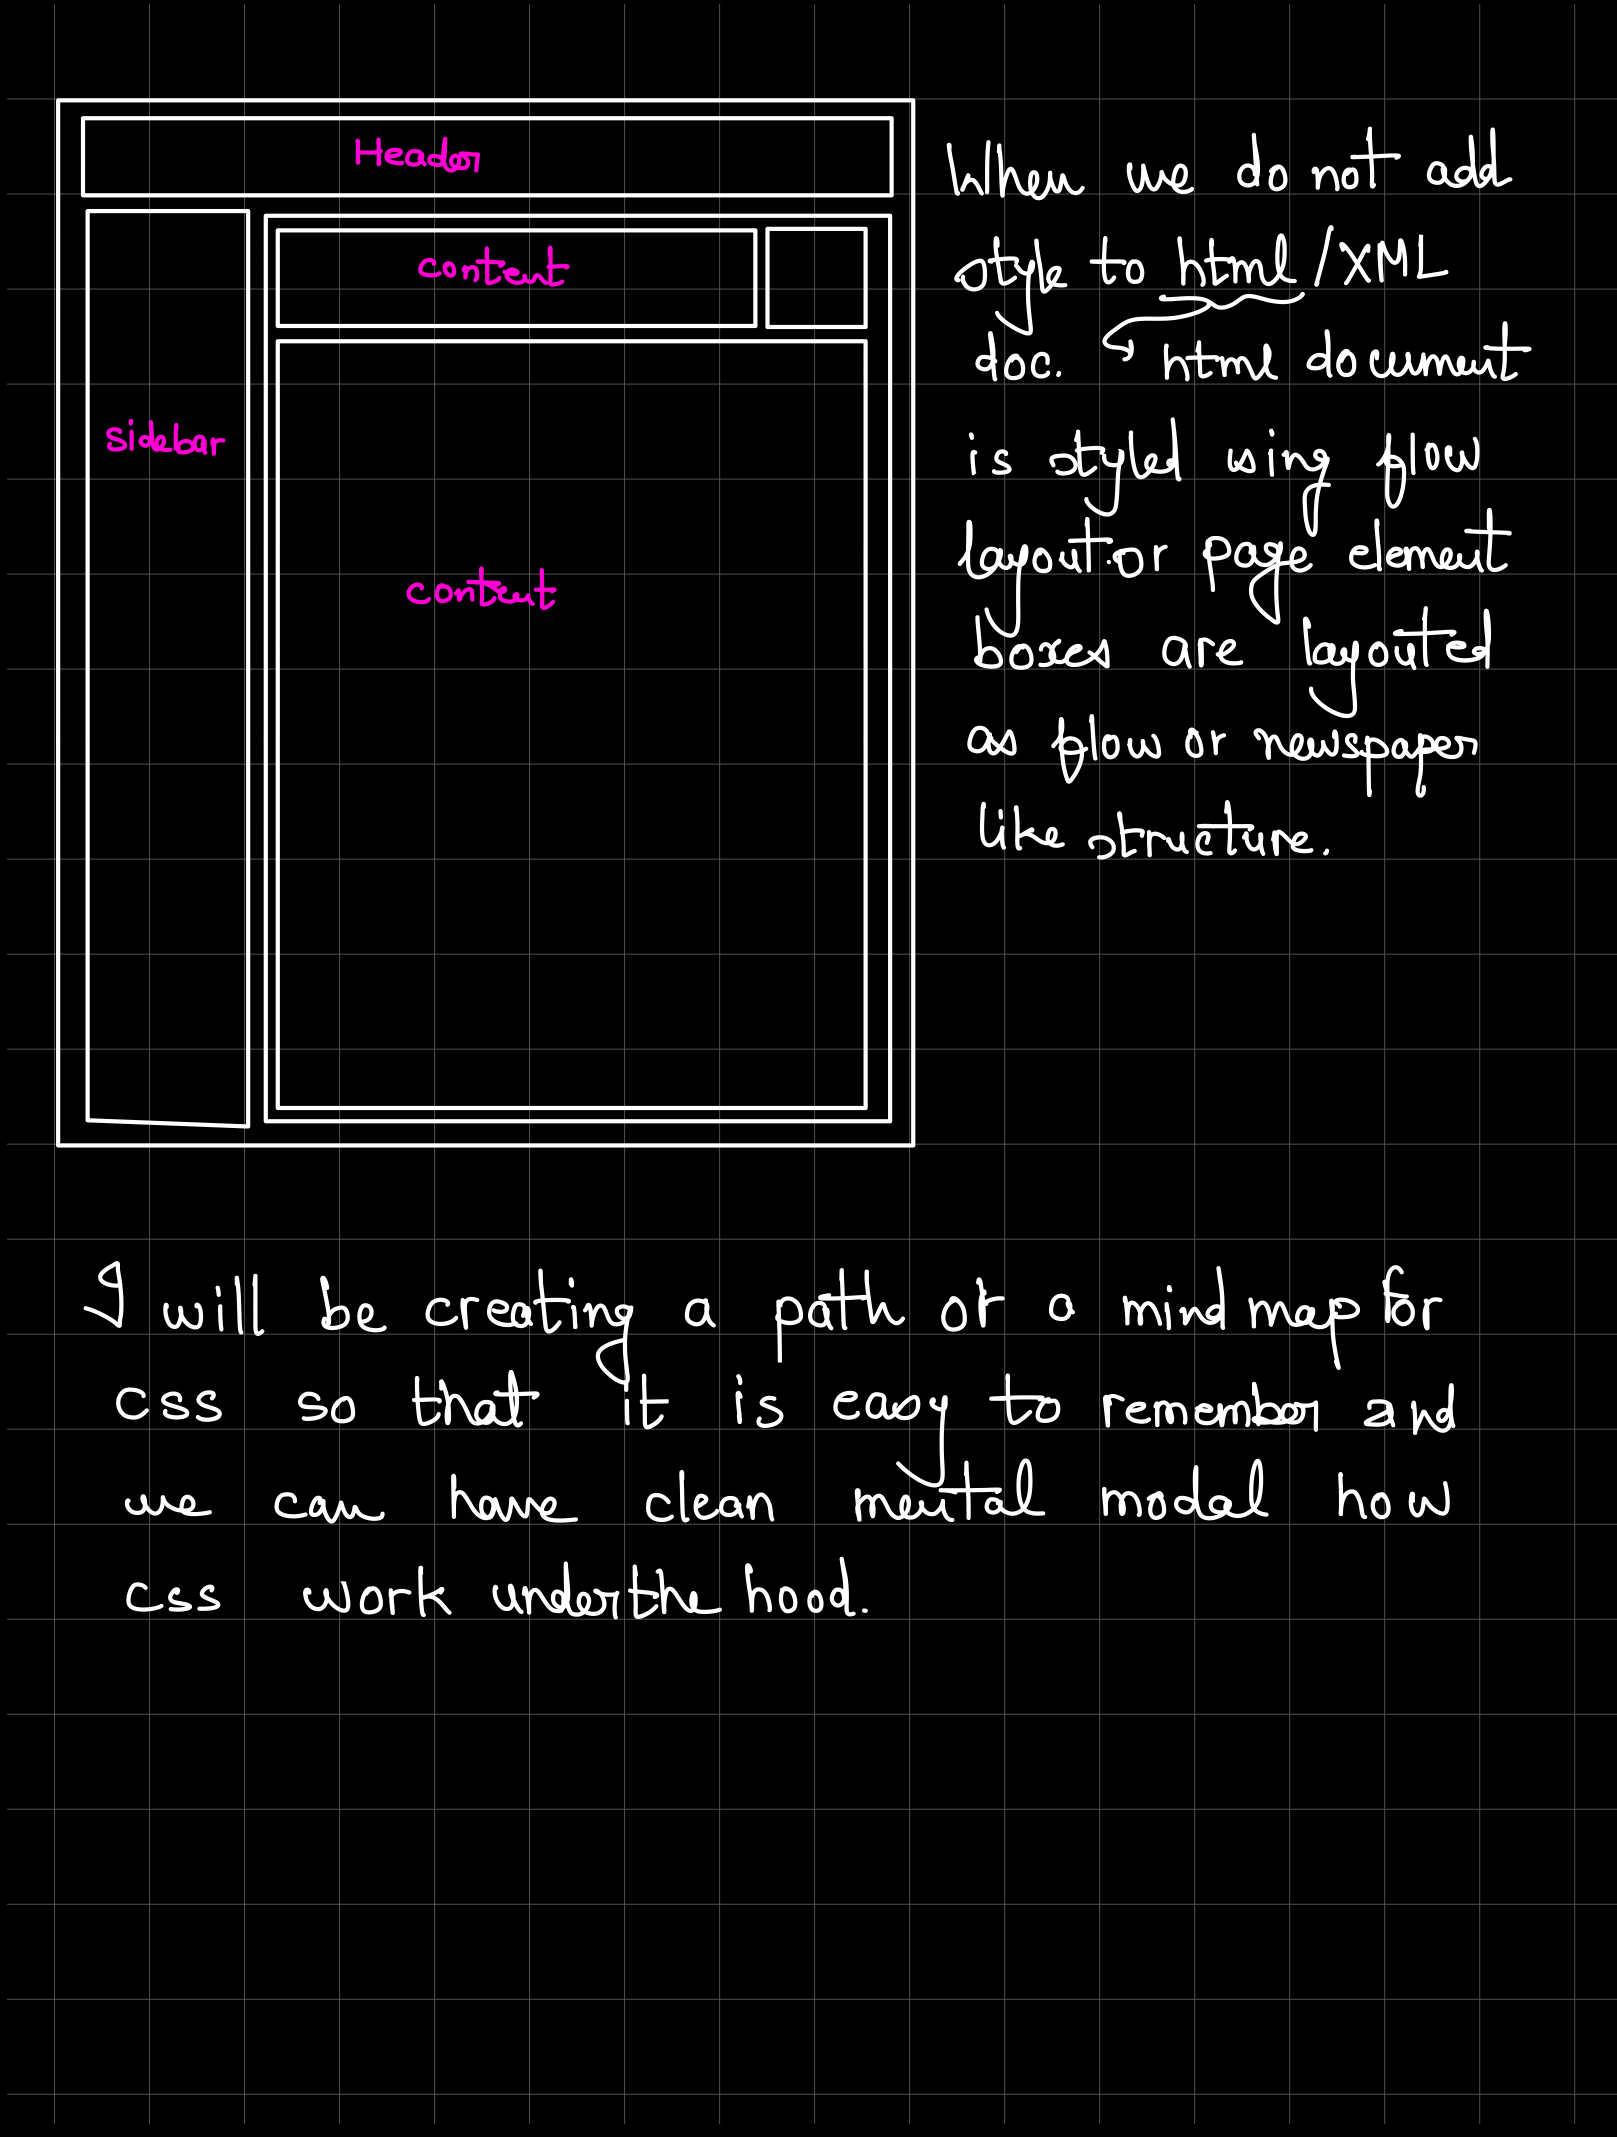 Header
content
sidebar
content
When we do not add
style to html/XML
doc. html document
is styled using flow
layout.or page element
boxes are layouted
as flow or newspaper
like structure.
I will be creating a path or a mind map for
css so that it is easy to remember and
we can have clean mental modal how
css work under the hood.